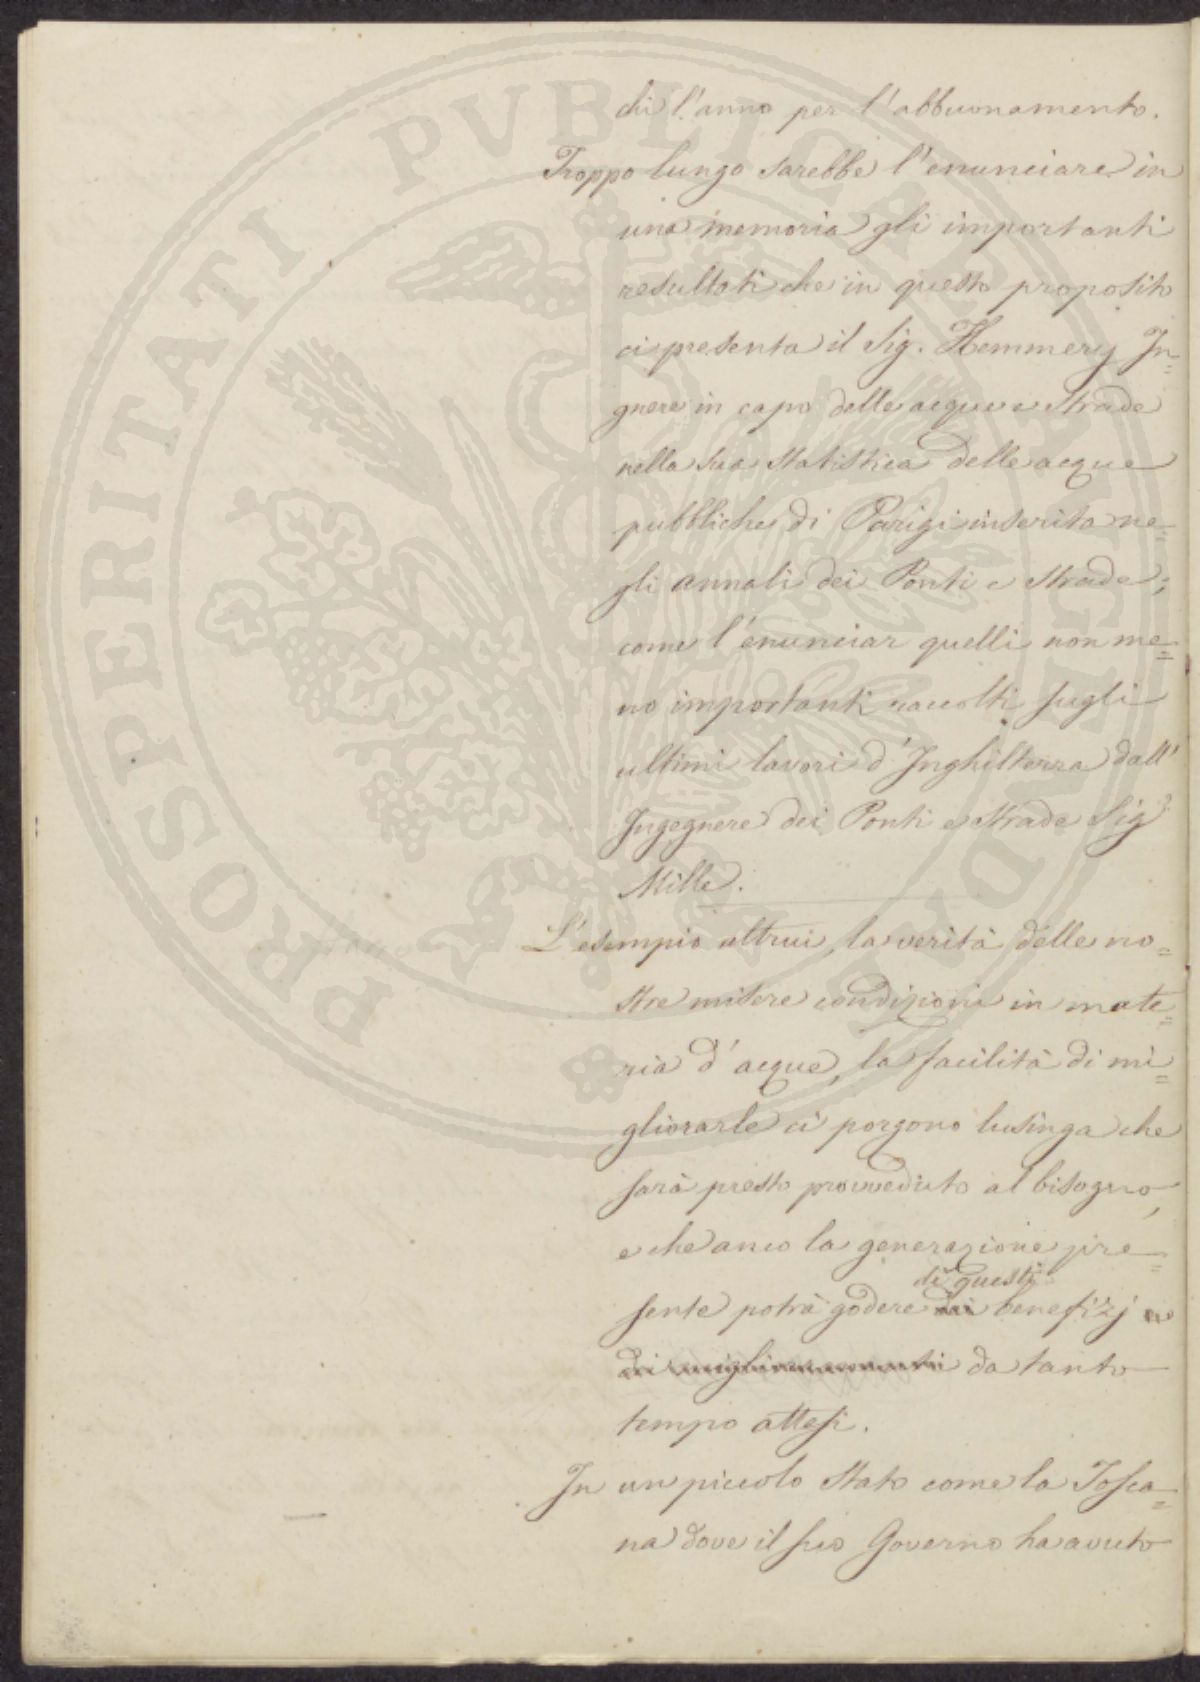 chi l'anno per l'abbuonamento.
Troppo lungo sarebbe l'enunciare in
una memoria gli importanti
resultati che in questo proposito
ci presenta il Sig. Hemmery In=
gnere in capo delle acque e strade
nella sua statistica delle acque
pubbliche di Parigi inserita ne=
gli annali dei Ponti e strade;
come l'enunciar quelli non me=
no importanti raccolti sugli
ultimi lavori d'Inghilterra dall'
Ingegnere dei Ponti e strade Sig.
Mille.
L'esempio altrui, la verità delle no=
stre misere condizioni in mate=
ria d'acque, la facilità di mi=
gliorarle ci porgono lusinga che
sarà presto provveduto al bisogno,
e che anco la generazione pre=
di questi
sente potrà godere dei benefizj
dei miglioramenti da tanto
tempo attesi.
In un piccolo Stato come la Tosca=
na dove il suo Governo ha avuto
PROSPERITATI PVBLICAE AVGENDAE